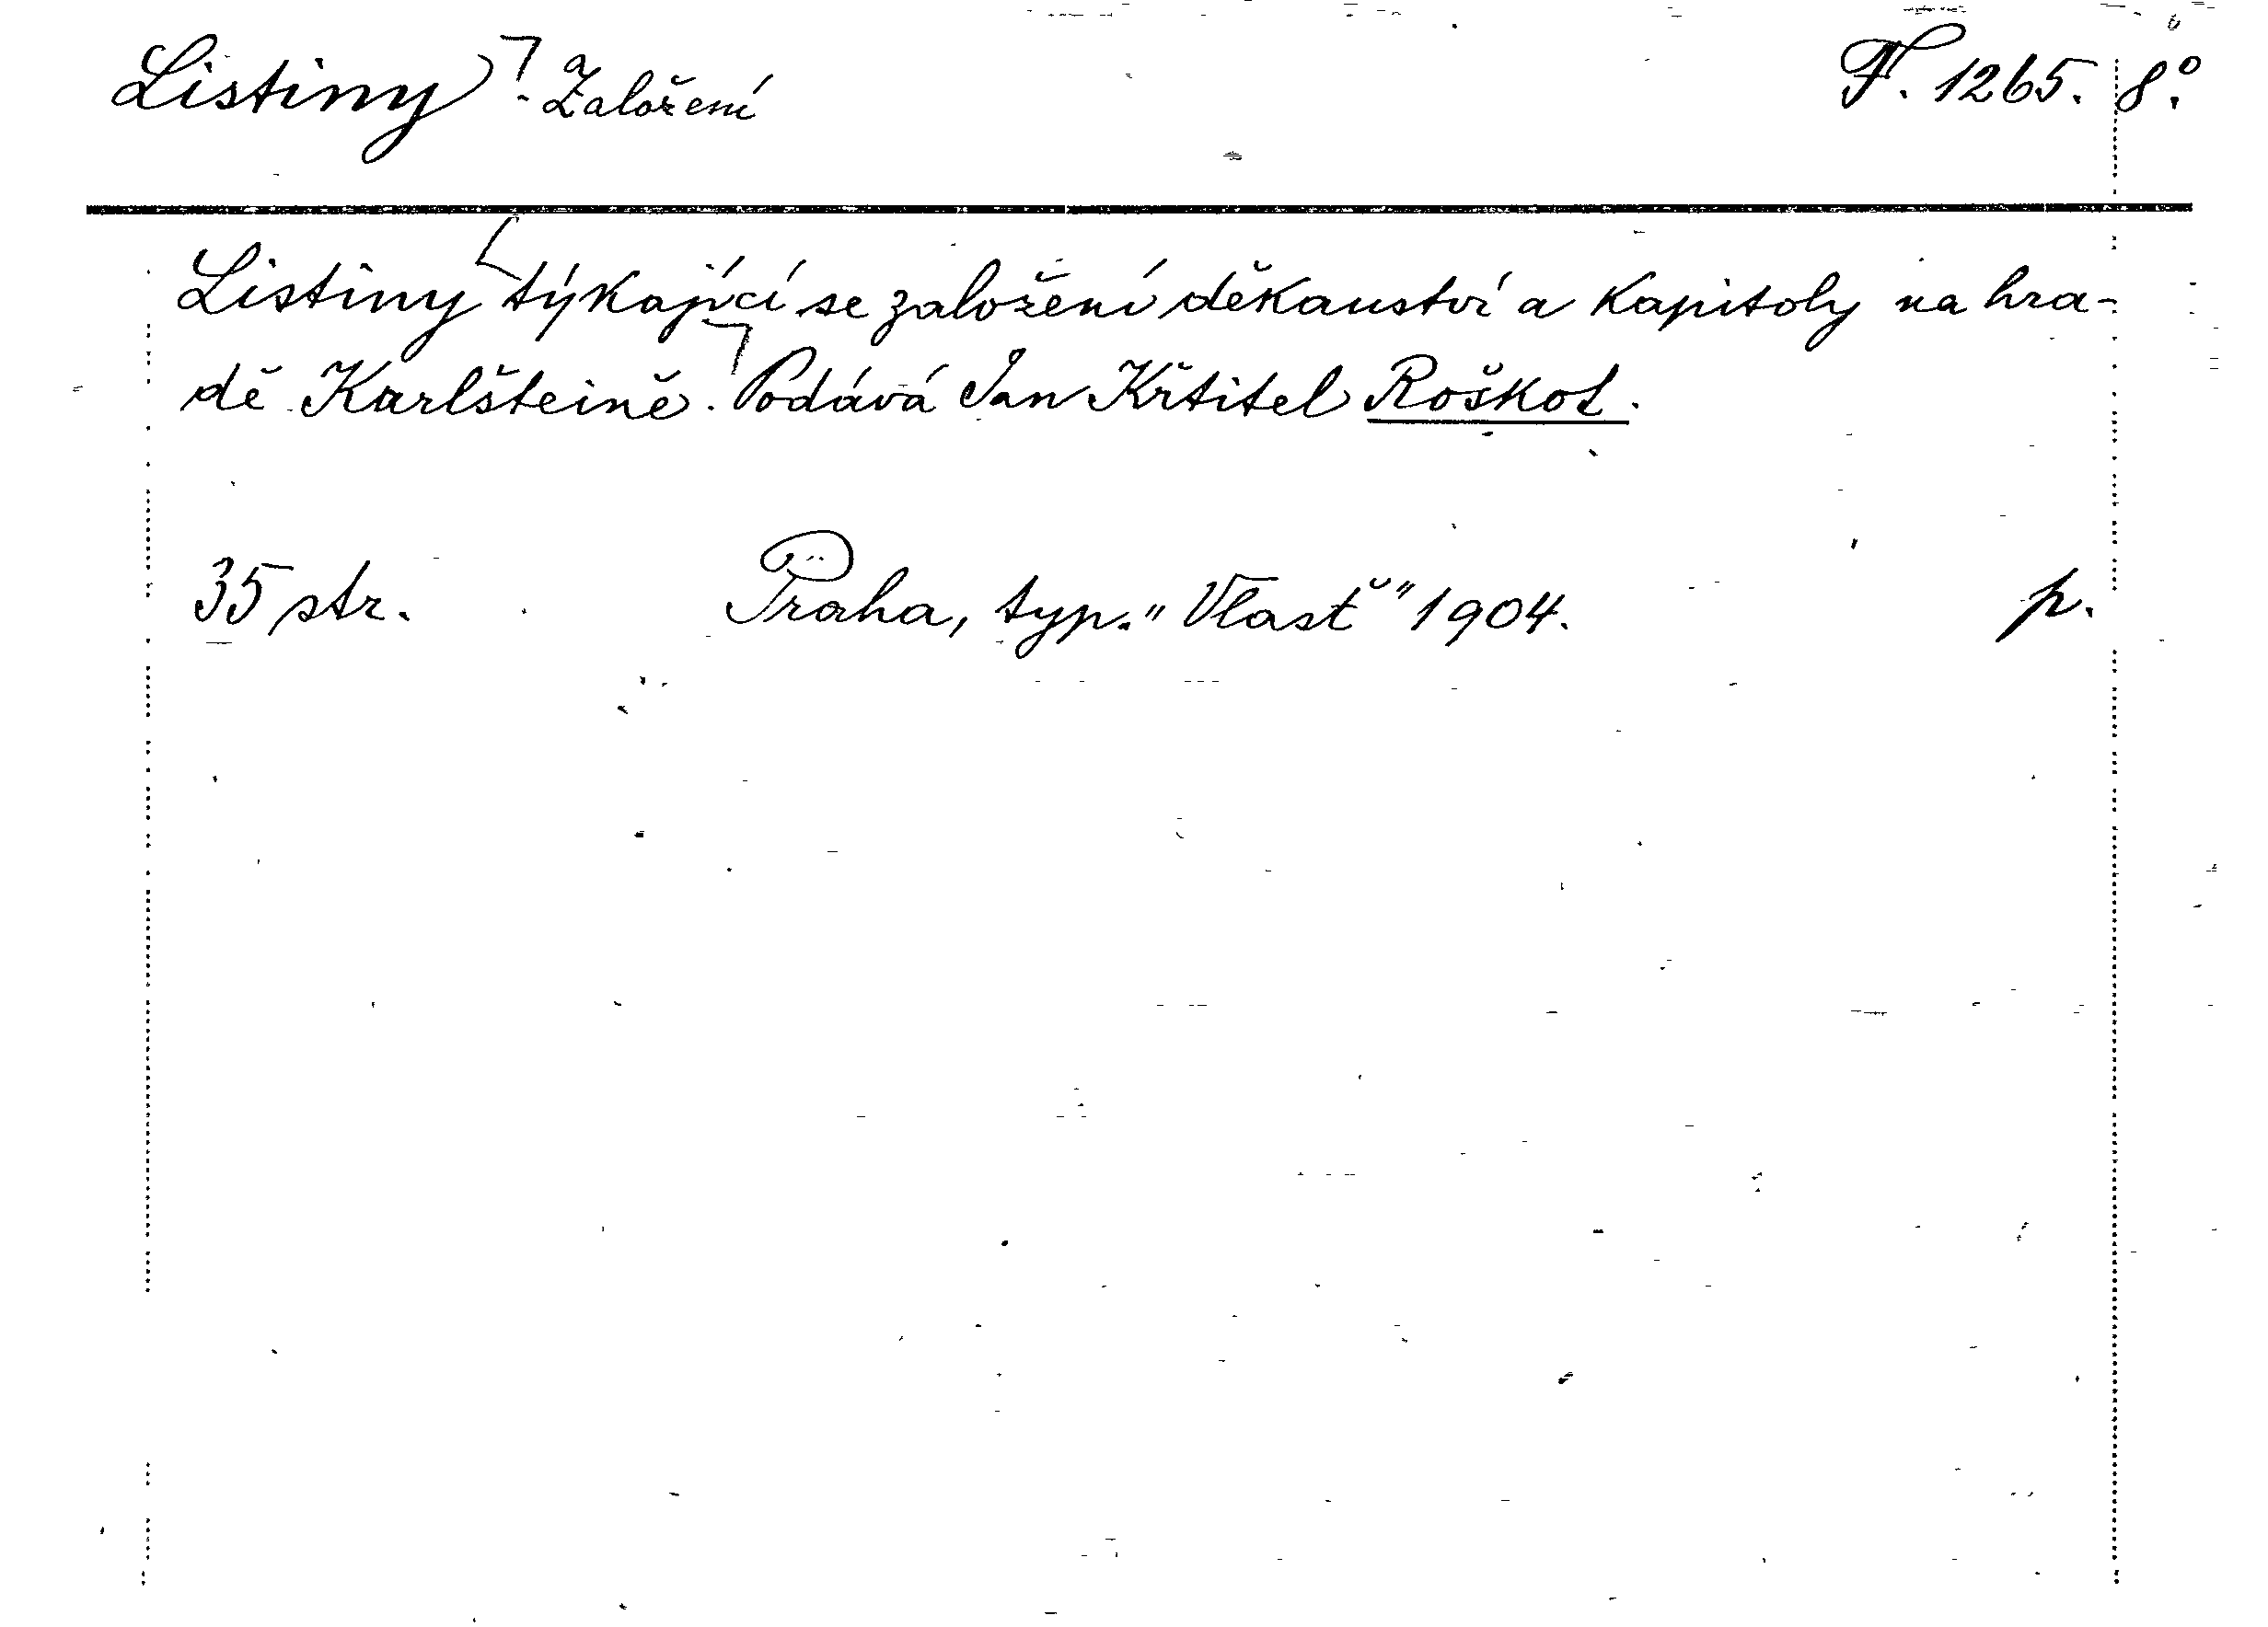 Listiny ⌉. Založení F. 1265. 8°.
a
Listiny týkající se založení děkanství a kapitoly na hra-
dě Karlšteině. Podává Jan Křtitel Roškot.
35 str. Praha, typ. "Vlasť" 1904. p.